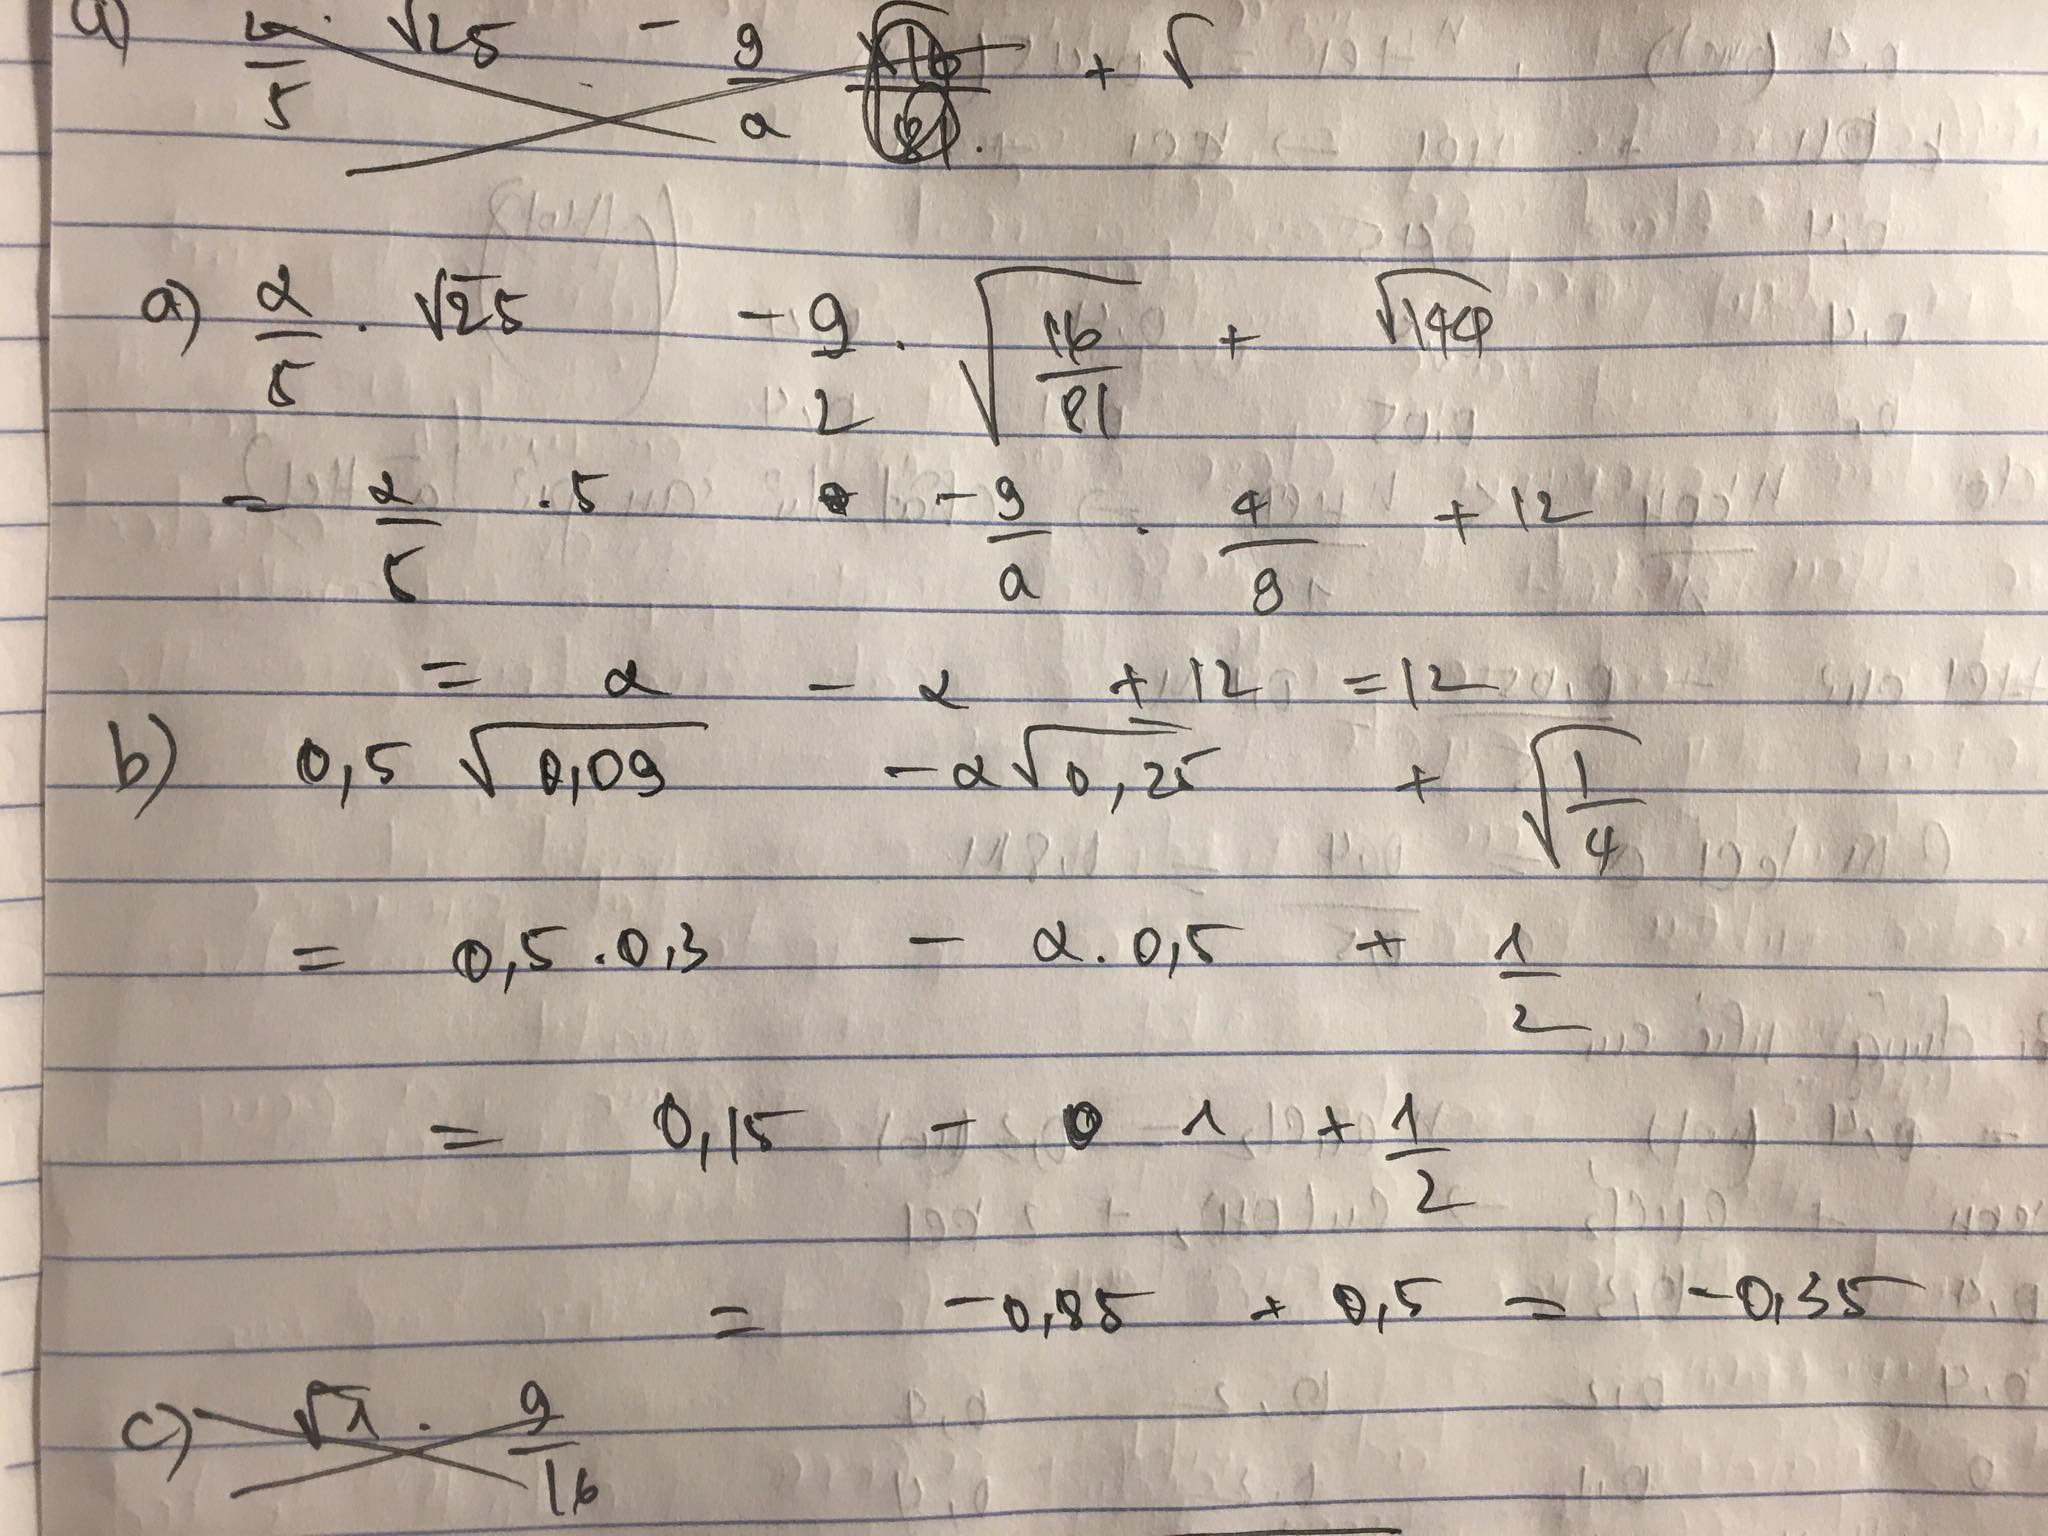 a) 2/5 . √25 - 9/2 √(16/81) + √
a) 2/5 . √25 - 9/2 . √(16/81) + √144
= 2/5 . 5 - 9/2 . 4/9 + 12
= 2 - 2 + 12 = 12
b) 0,5 √0,09 - 2√0,25 + √(1/4)
= 0,5 . 0,3 - 2 . 0,5 + 1/2
= 0,15 - 1 + 1/2
= -0,85 + 0,5 = -0,35
c) √1 . 9/16